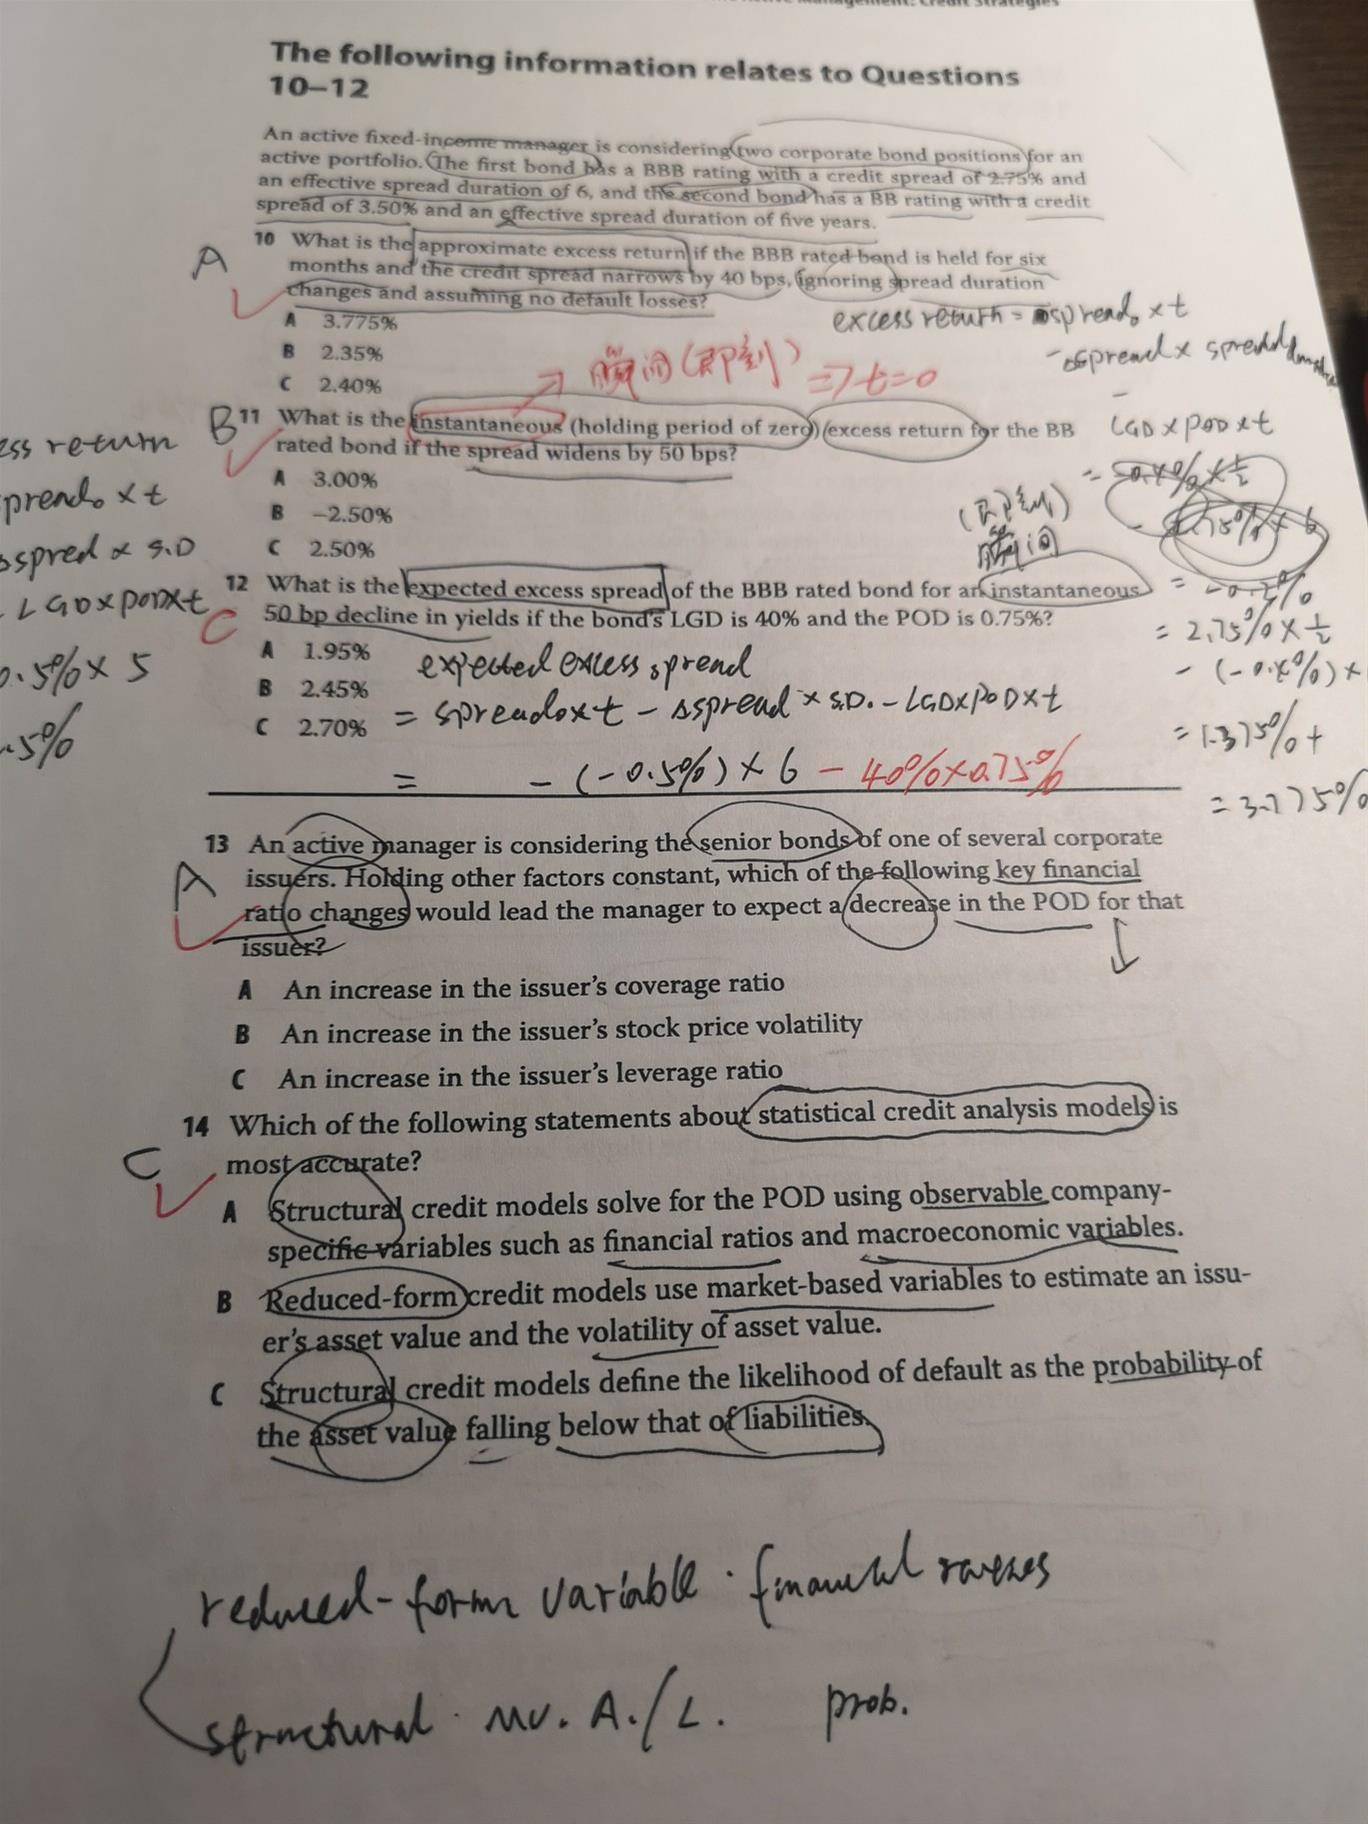 The following information relates to Questions
10–12
An active fixed-income manager is considering two corporate bond positions for an
active portfolio. The first bond has a BBB rating with a credit spread of 2.75% and
an effective spread duration of 6, and the second bond has a BB rating with a credit
spread of 3.50% and an effective spread duration of five years.
10 What is the approximate excess return if the BBB rated bond is held for six
months and the credit spread narrows by 40 bps, ignoring spread duration
changes and assuming no default losses?
A
A 3.775%
B 2.35%
C 2.40%
excess return = spread₀ × t
- Δspread × spread
LGD × POD × t
瞬间(即刻)
=> t=0
11 What is the instantaneous (holding period of zero) excess return for the BB
rated bond if the spread widens by 50 bps?
B
A 3.00%
B −2.50%
C 2.50%
ess return
pread₀ × t
spred × S.D
LGD×POD×t
0.5% × 5
.5%
(即刻)
瞬间
12 What is the expected excess spread of the BBB rated bond for an instantaneous
50 bp decline in yields if the bond's LGD is 40% and the POD is 0.75%?
C
A 1.95%
B 2.45%
C 2.70%
expected excess spread
= spread₀×t − Δspread × S.D. − LGD×POD×t
= − (−0.5%) × 6 − 40%×0.75%
= 2.75% × ½
− (−0.4%) ×
= 1.375% +
= 3.775%
13 An active manager is considering the senior bonds of one of several corporate
issuers. Holding other factors constant, which of the following key financial
ratio changes would lead the manager to expect a decrease in the POD for that
issuer?
A
A An increase in the issuer's coverage ratio
B An increase in the issuer's stock price volatility
C An increase in the issuer's leverage ratio
14 Which of the following statements about statistical credit analysis models is
most accurate?
C
A Structural credit models solve for the POD using observable company-
specific variables such as financial ratios and macroeconomic variables.
B Reduced-form credit models use market-based variables to estimate an issu-
er's asset value and the volatility of asset value.
C Structural credit models define the likelihood of default as the probability of
the asset value falling below that of liabilities.
reduced-form variable · financial
structural · MV. A./L. prob.